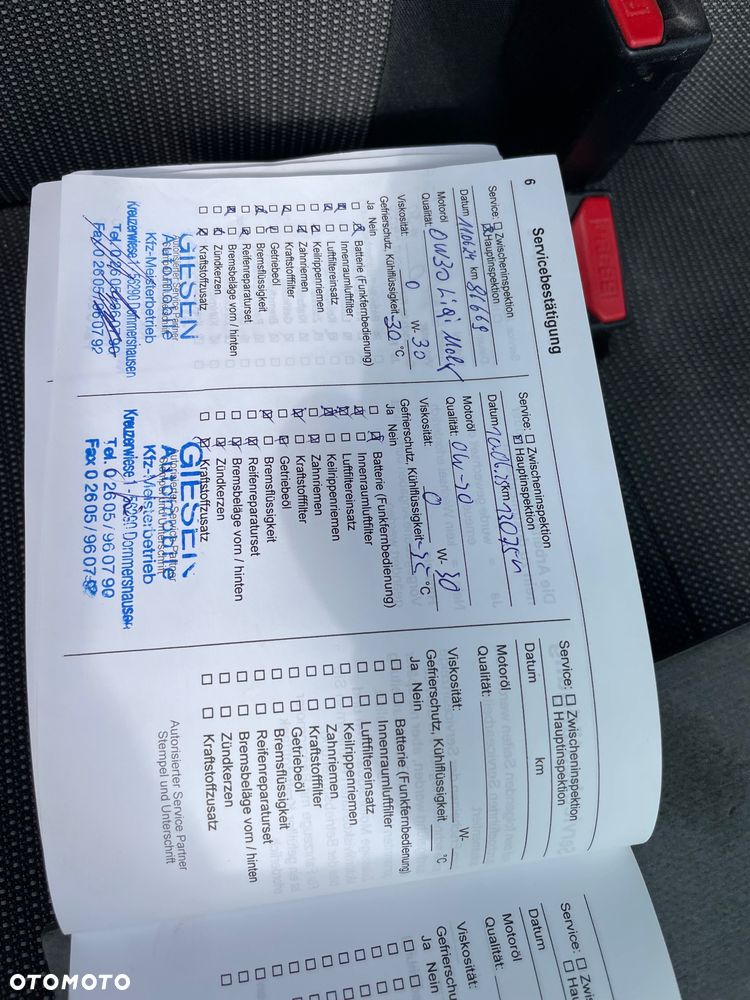 6
Servicebestätigung
Service: ☐ Zwischeninspektion
☒ Hauptinspektion
Datum 110624 km 81669
Motoröl
Qualität: 0W30 Liqi Moly
Viskosität: 0 W- 30
Gefrierschutz, Kühlflüssigkeit -30 °C
Ja Nein
Batterie (Funkfernbedienung)
Innenraumluftfilter
Luftfiltereinsatz
Keilrippenriemen
Zahnriemen
Kraftstofffilter
Getriebeöl
Bremsflüssigkeit
Reifenreparaturset
Bremsbeläge vorn / hinten
Zündkerzen
Kraftstoffzusatz
GIESEN
Automobile
Autorisierter Service Partner
Kfz-Meisterbetrieb
Kreuzerwiese 1 · 56290 Dommershausen
Tel. 0 26 05 / 96 07 90
Fax 0 26 05 / 96 07 92
Service: ☐ Zwischeninspektion
☒ Hauptinspektion
Datum km
Motoröl
Qualität:
Viskosität: 0 W- 30
Gefrierschutz, Kühlflüssigkeit °C
Ja Nein
Batterie (Funkfernbedienung)
Innenraumluftfilter
Luftfiltereinsatz
Keilrippenriemen
Zahnriemen
Kraftstofffilter
Getriebeöl
Bremsflüssigkeit
Reifenreparaturset
Bremsbeläge vorn / hinten
Zündkerzen
Kraftstoffzusatz
GIESEN
Automobile
Autorisierter Service Partner
Kfz-Meisterbetrieb
Kreuzerwiese 1 - 56290 Dommershausen
Tel. 0 26 05 / 96 07 90
Fax 0 26 05 / 96 07
Service: ☐ Zwischeninspektion
☐ Hauptinspektion
Datum km
Motoröl
Qualität:
Viskosität: W-
Gefrierschutz, Kühlflüssigkeit °C
Ja Nein
☐ ☐ Batterie (Funkfernbedienung)
☐ ☐ Innenraumluftfilter
☐ ☐ Luftfiltereinsatz
☐ ☐ Keilrippenriemen
☐ ☐ Zahnriemen
☐ ☐ Kraftstofffilter
☐ ☐ Getriebeöl
☐ ☐ Bremsflüssigkeit
☐ ☐ Reifenreparaturset
☐ ☐ Bremsbeläge vorn / hinten
☐ ☐ Zündkerzen
☐ ☐ Kraftstoffzusatz
Autorisierter Service Partner
Stempel und Unterschrift
Service: ☐
Datum
Motoröl
Qualität:
Viskosität:
Ja Nein
PRESS
OTOMOTO